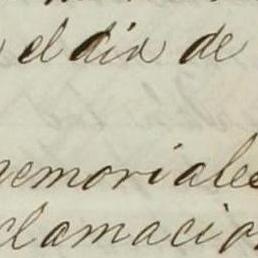 el dia de
memoriales
clamacion